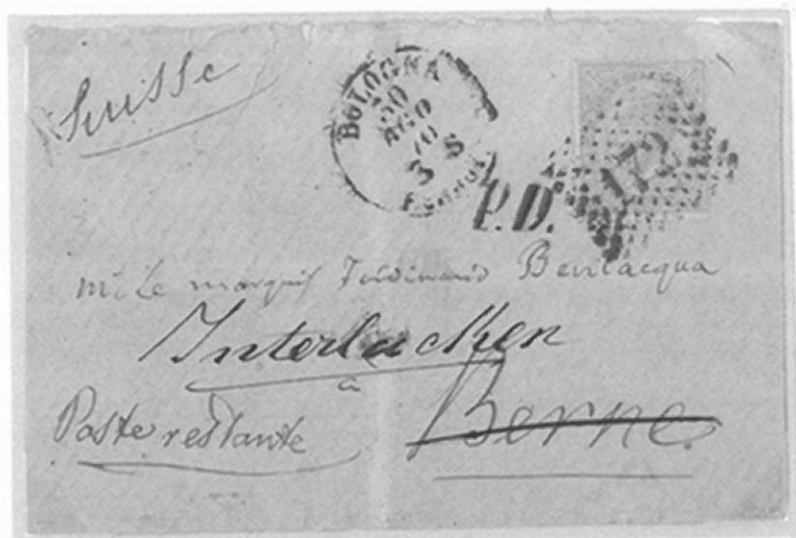 Suisse
BOLOGNA
30
AGO
70
3 S
P.D.
172
Mr Le marquis Ferdinand Bevilacqua
Interlacken
a
Poste restante
Berne